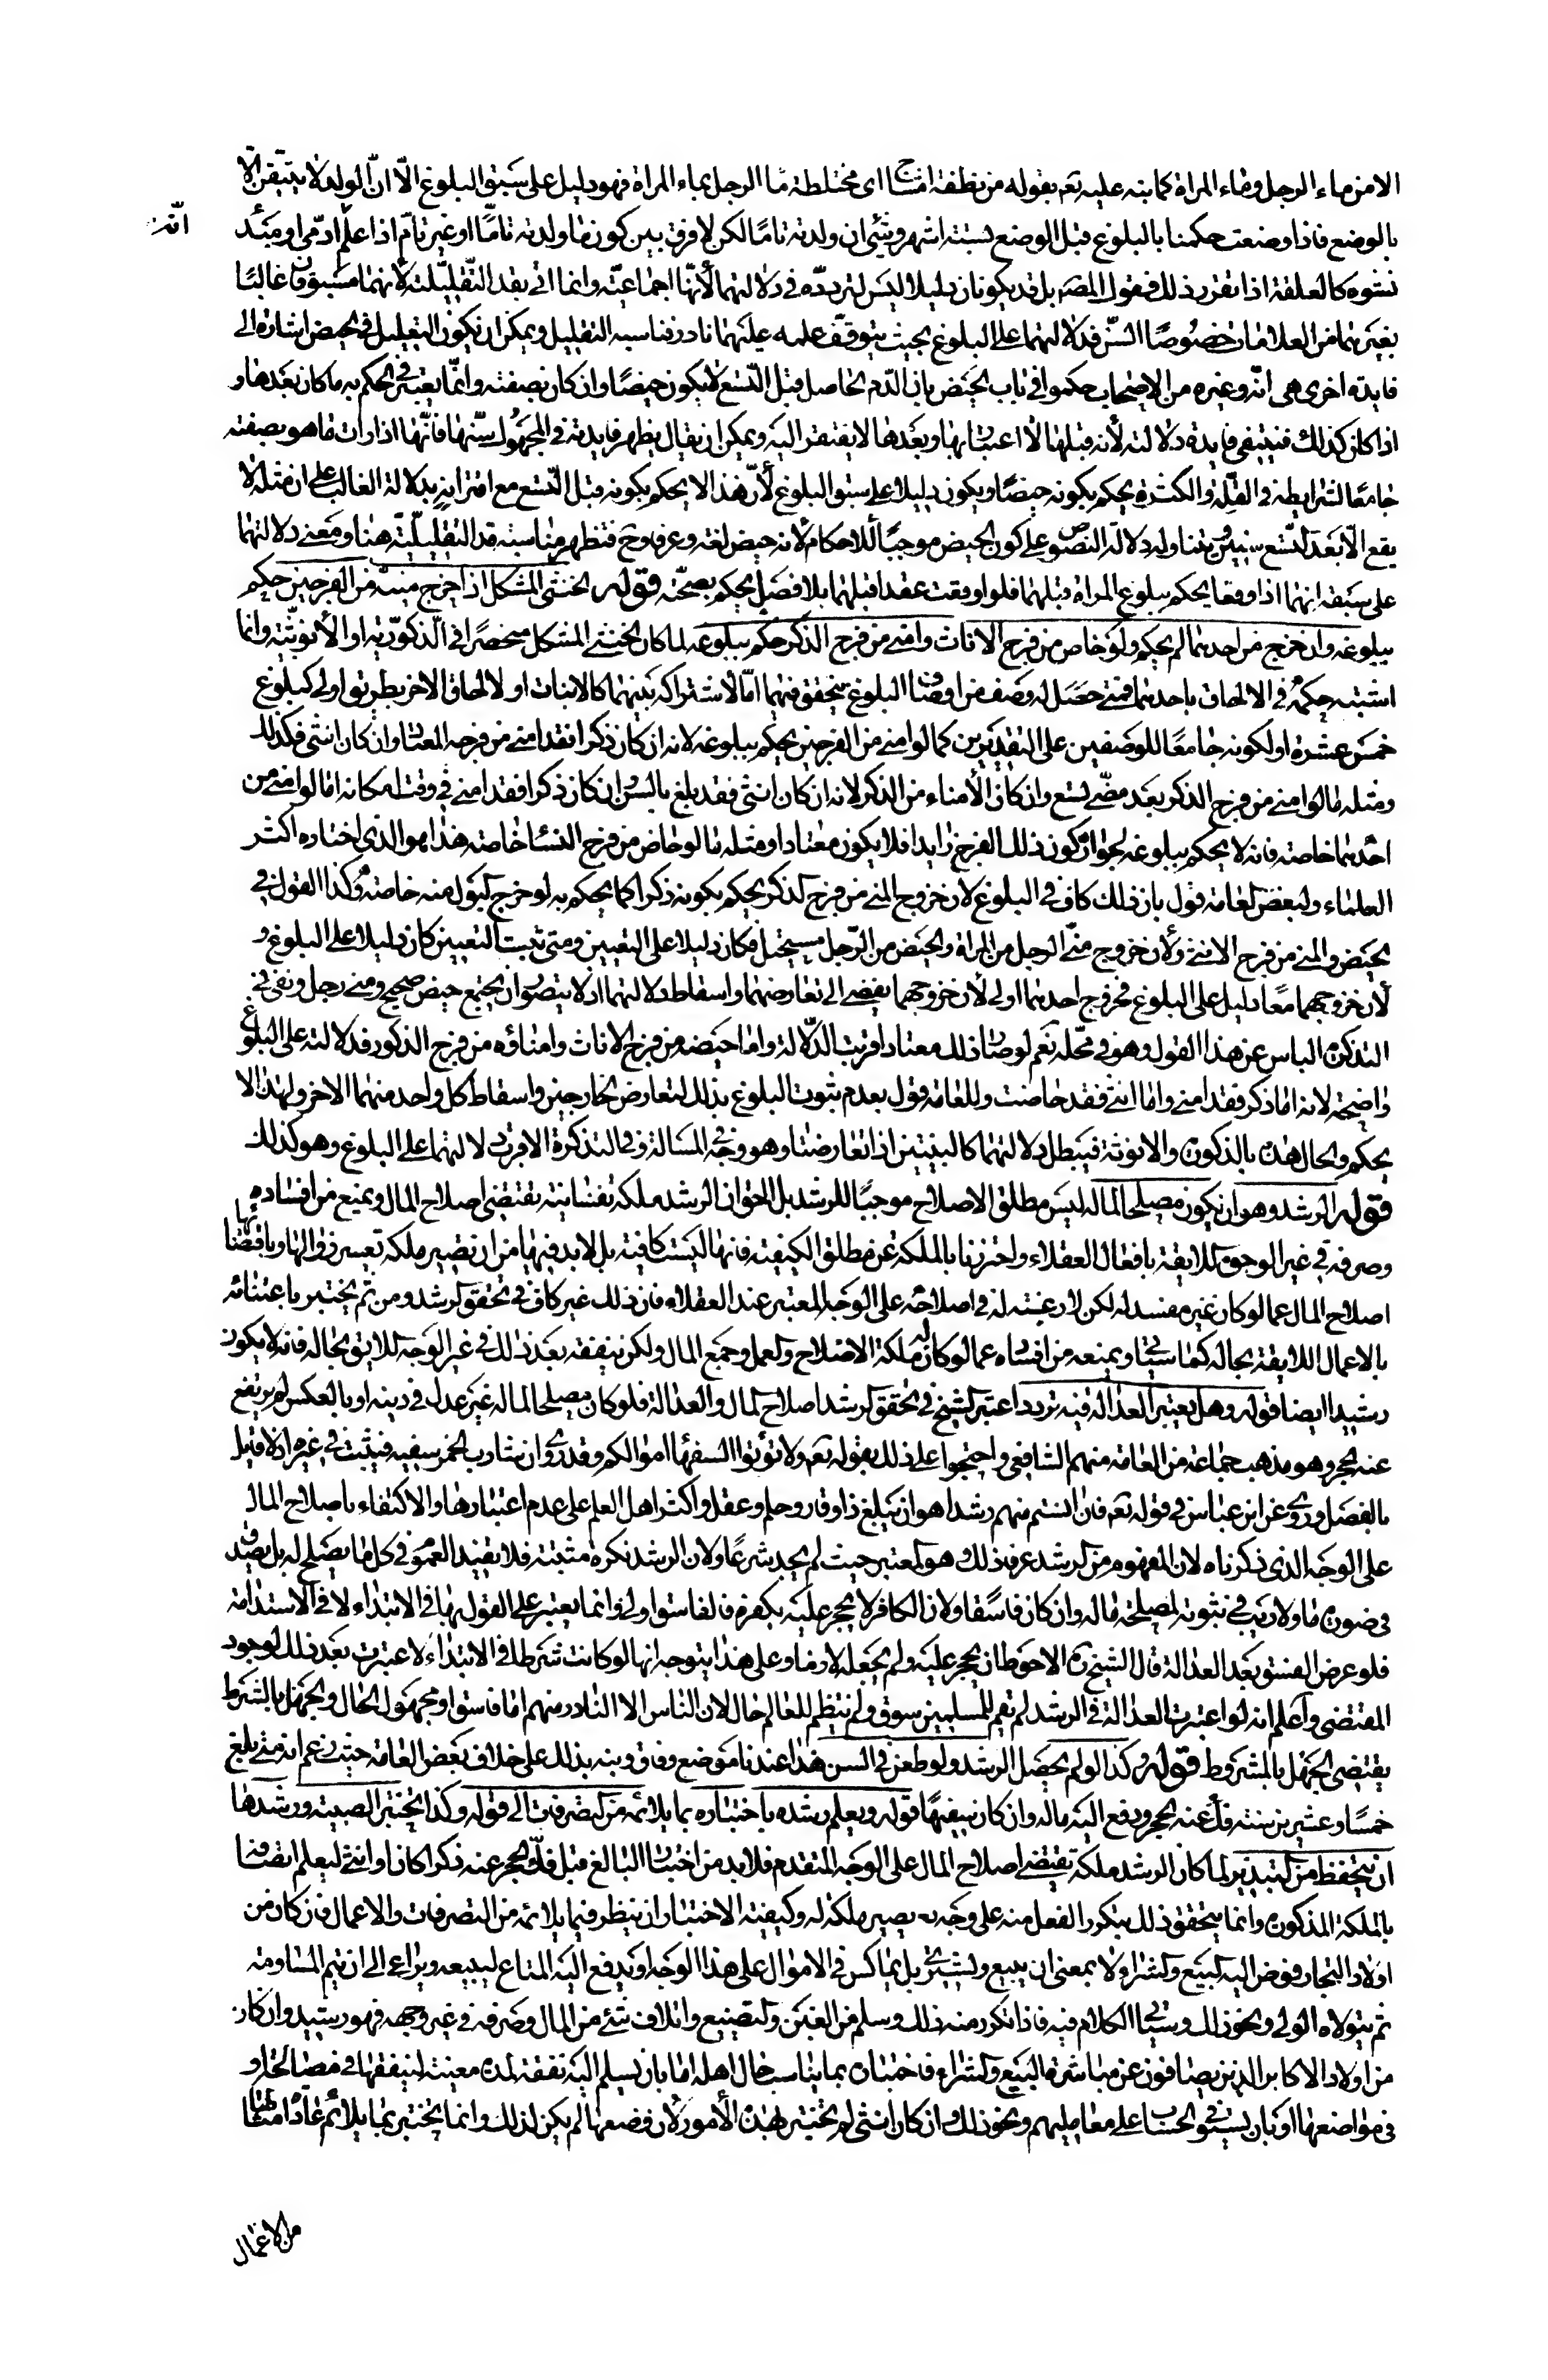 الا من ماء الرجل وماء المراة كما نبه عليه تعم بقوله من نطفة امشاج اى مختلطة ماء الرجل بماء المراة فهو دليل على سبق البلوغ الّا انّ الولد لا يتيقن الّا
بالوضع فاذا وضعت حكمنا بالبلوغ قبل الوضع لستة اشهر وشئ ان ولدته تامّا لكن لا فرق بين كون ما ولدته تامّا او غير تامّ اذا علم انّه ادمى او مبدء
نشوه كالعلقة اذا تقرر ذلك فقول المصَ بل قد يكونان دليلا ليس لتردّده فى دلالتهما لأنّها اجماعيّة وانما اتى بقد التقليليّة لانهما مسبوقان غالبًا
بغيرهما من العلامات خصوصًا السّن فدلالتهما على البلوغ بحيث يتوقف علمه عليهما نادر فناسبه التقليل ويمكن ان يكون التعليل فى الحيض اشارة الى
فايدة اخرى هى انّه وغيره من الاصحاب حكموا فى باب الحيض بان الدّم الحاصل قبل التّسع لا يكون حيضًا وان كان بصفته وانّما يعتبر فى الحكم به ما كان بعدها و
اذا كان كذلك فينتفى فايدة دلالته لأنه قبلها لا اعتبار بها وبعدها لا يفتقر اليه ويمكن ان يقال يظهر فايدته فى المجهول سنّها فانّها اذا رات ما هو بصفته
جامعًا لشرايطه فى القلّة والكثرة يحكم بكونه حيضًا ويكون دليلا على سبق البلوغ لأنّ هذا لا يحكم بكونه قبل التّسع مع اقترانه بدلالة الغالب على ان مثله لا
يقع الّا بعد التّسع سنين ويتناوله دلالة النصوص على كون الحيض موجبًا للاحكام لأنه حيض لغة وعرفا وح فتظهر مناسبة قد التقليليّة هنا ومعنى دلالتهما
على سبقه انهما اذا وقعا يحكم ببلوغ المراة قبلهما فلو اوقعت عقدا قبلهما بلا فصل يحكم بصحّته قوله الخنثى المشكل اذا خرج منيه من الفرجين حكم
ببلوغه وان خرج من احدهما لم يحكم ولو حاض من فرج الاناث وامنى من فرج الذكر حكم ببلوغه لما كان الخنثى المشكل منحصرًا فى الذكوريّة او الأنوثيّة وانما
اشتبه حكمه فى الالحاق باحدهما فمتى حصل له وصف من اوصاف البلوغ يتحقق فيهما امّا لاشتراكه بينهما كالانبات او لالحاق الاخر بطريق اولى كبلوغ
خمس عشرة او لكونه جامعًا للوصفين على التقديرين كما لو امنى من الفرجين يحكم ببلوغه لانه ان كان ذكرا فقد امنى من فرجه المعتاد وان كان انثى فكذلك
ومثله ما لو امنى من فرج الذكر بعد مضّى تسع وان كان الأمناء من الذكر لانه ان كان انثى فقد بلغ بالسن وان كان ذكرا فقد امنى فى وقت امكانه اما لو امنى من
احدهما خاصة فانه لا يحكم ببلوغه لجواز كون ذلك الفرج زايدا فلا يكون معتادا ومثله ما لو حاض من فرج النساء خاصة هذا هو الذى اختاره اكثر
العلماء ولبعض العامة قول بان ذلك كاف فى البلوغ لان خروج المنى من فرج الذكر يحكم بكونه ذكرا كما يحكم به لو خرج البول منه خاصة وكذا القول فى
الحيض والمنى من فرج الانثى ولأن خروج منىّ الرجل من المراة والحيض من الرّجل مستحيل فكان دليلا على التعيين ومتى ثبت التعيين كان دليلا على البلوغ و
لأن خروجهما معًا دليل على البلوغ فخروج احدهما اولى لأن خروجهما يفضى الى تعارضهما واسقاط دلالتهما اذ لا يتصوّر ان يجتمع حيض صحيح ومنى رجل ونفى فى
التذكرة الباس عن هذا القول وهو فى محلّه نعم لو صار ذلك معتادا قربت الدّلالة واما حيضه من فرج الاناث وامناؤه من فرج الذكور فدلالته على البلوغ
واضحة لانه اما ذكر فقد امنى واما انثى فقد حاضت وللعامة قول بعدم ثبوت البلوغ بذلك لتعارض الخارجين واسقاط كل واحد منهما الاخر ولهذا لا
يحكم والحال هذه بالذكورة والانوثة فيبطل دلالتهما كالبينتين اذا تعارضتا وهو وجه فى المسالة وفى التذكرة الاقرب دلالتهما على البلوغ وهو كذلك
قوله الرشد وهو ان يكون مصلحا لماله ليس مطلق الاصلاح موجبًا للرشد بل الحق ان الرشد ملكة نفسانية تقتضى اصلاح المال وتمنع من افساده
وصرفه فى غير الوجوه اللايقة بافعال العقلاء واحترزنا بالملكة عن مطلق الكيفية فانها ليست كافية بل لا بد فيها من ان تصير ملكة تعسر زوالها وباقتضائها
اصلاح المال عما لو كان غير مفسد له لكن لا رغبة له فى اصلاحه على الوجه المعتبر عند العقلاء فان ذلك غير كاف فى تحقق الرشد ومن ثم يختبر باعتنائه
بالاعمال اللايقة بحاله كما سياتى وبمنعه من افساده عما لو كان له ملكة الاصلاح والعمل وجمع المال ولكن ينفقه بعد ذلك فى غير الوجه اللايق بحاله فانه لا يكون
رشيدا ايضا قوله وهل يعتبر العدالة فيه تردد اعتبر الشيخ فى تحقق الرشد اصلاح المال والعدالة فلو كان مصلحا لماله غير عدل فى دينه او بالعكس لم يرتفع
عنه الحجر وهو مذهب جماعة من العامة منهم الشافعى واحتجوا على ذلك بقوله تعم ولا تؤتوا السفهاء اموالكم وقد روى ان شارب الخمر سفيه فيثبت فى غيره اذ لا قايل
بالفصل وروى عن ابن عباس فى قوله تعم فان انستم منهم رشدا هو ان يبلغ ذا وقار وحلم وعقل واكثر اهل العلم على عدم اعتبارها والاكتفاء باصلاح المال
على الوجه الذى ذكرناه لان المفهوم من الرشد عرفا ذلك وهو المعتبر حيث لم يحد شرعًا ولان الرشد نكرة مثبتة فلا يفيد العموم فى كل ما يصلح له بل يصدق
فى صورة ما ولا ريب فى ثبوته لمصلحة ماله وان كان فاسقًا ولان الكافر لا يحجر عليه بكفره فالفاسق اولى وانما يعتبر على القول بها فى الابتداء لا فى الاستدامة
فلو عرض الفسق بعد العدالة قال الشيخ ره الاحوط ان يحجر عليه ولم يجعله لازما وعلى هذا يتوجه انها لو كانت شرطا فى الابتداء لاعتبرت بعد ذلك لوجود
المقتضى واعلم انه لو اعتبرت العدالة فى الرشد لم تقم للمسلمين سوق ولم ينتظم للعالم حال لان الناس الا النادر منهم اما فاسق او مجهول الحال والجهل بالشرط
يقتضى الجهل بالمشروط قوله وكذا لو لم يحصل الرشد ولو طعن فى السن هذا عندنا موضع وفاق ونبه بذلك على خلاف بعض العامة حيث زعم انه متى بلغ
خمسًا وعشرين سنة فك عنه الحجر ودفع اليه ماله وان كان سفيهًا قوله ويعلم رشده باختباره بما يلائمه من التصرفات الى قوله وكذا تختبر الصبية ورشدها
ان تتحفظ من التبذير لما كان الرشد ملكة تقتضى اصلاح المال على الوجه المتقدم فلا بد من اختبار البالغ قبل فكّ الحجر عنه ذكرا كان او انثى ليعلم اتصافه
بالملكة المذكورة وانما يتحقق ذلك بتكرر الفعل منه على وجه يصير ملكة له وكيفية الاختبار ان ينظر فيما يلائمه من التصرفات والاعمال فان كان من
اولاد التجار فوض اليه البيع والشراء لا بمعنى ان يبيع ويشترى بل يماكس فى الاموال على هذا الوجه او يدفع اليه المتاع ليبيعه ويراعى الى ان يتم المساومة
ثم يتولاه الولى ونحو ذلك وسياتى الكلام فيه فاذا تكرر منه ذلك وسلم من الغبن والتضييع واتلاف شئ من المال وصرفه فى غير وجهه فهو رشيد وان كان
من اولاد الاكابر الذين يصانون عن مباشرة البيع والشراء فاختباره بما يناسب حال اهله اما بان يسلم اليه نفقة لمدة معينة لينفقها فى مصالحه او
فى مواضعها او بان يستوفى الحساب على معامليهم ونحو ذلك وان كان انثى لم تختبر بهذه الأمور لأن وضعها لم يكن لذلك وانما تختبر بما يلائم عادة امثالها
من الاعمال